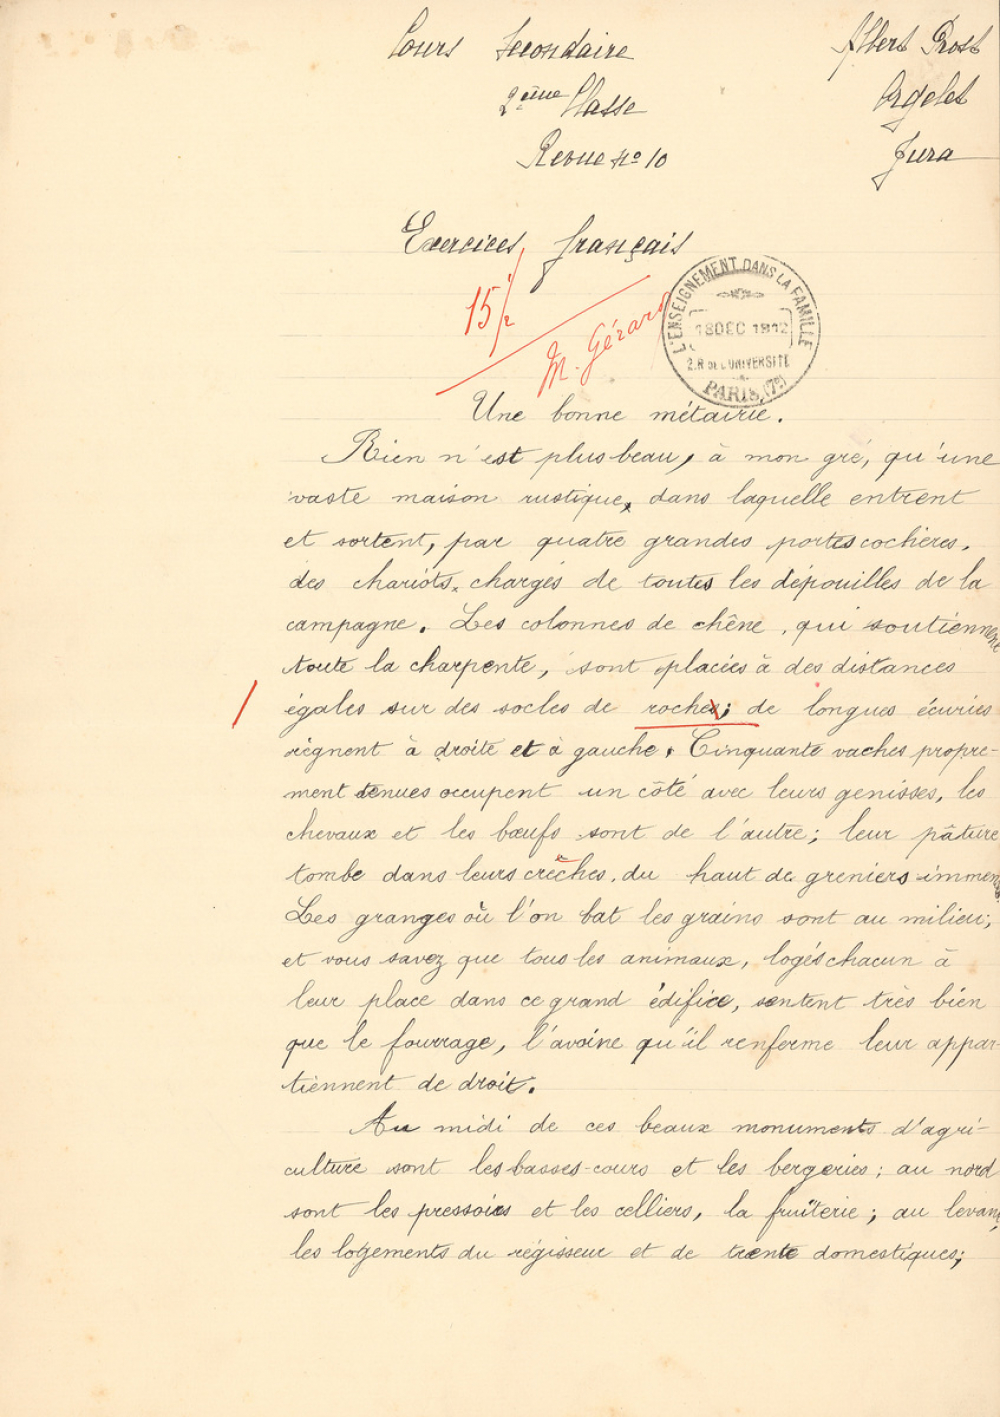 Cours Secondaire
Albert Prost
2ème Classe
Orgelet
Revue No 10
Jura
Exercices français
15 1/2
M. Gérard
L'ENSEIGNEMENT DANS LA FAMILLE
18 DEC 1912
2.R DE L'UNIVERSITÉ
PARIS.(7e)
Une bonne métairie.
Rien n'est plus beau, à mon gré, qu'une
vaste maison rustique, dans laquelle entrent
et sortent, par quatre grandes portes cochères,
des chariots, chargés de toutes les dépouilles de la
campagne. Les colonnes de chêne, qui soutiennent
toute la charpente, sont placées à des distances
égales sur des socles de roches; de longues écuries
règnent à droite et à gauche. Cinquante vaches propre-
ment tenues occupent un côté avec leurs genisses, les
chevaux et les bœufs sont de l'autre; leur pâture
tombe dans leurs crèches, du haut de greniers immenses.
Les granges où l'on bat les grains sont au milieu;
et vous savez que tous les animaux, logés chacun à
leur place dans ce grand édifice, sentent très bien
que le fourrage, l'avoine qu'il renferme leur appar-
tiennent de droit.
Au midi de ces beaux monuments d'agri-
culture sont les basses-cours et les bergeries; au nord
sont les pressoirs et les celliers, la fruiterie; au levant,
les logements du régisseur et de trente domestiques;